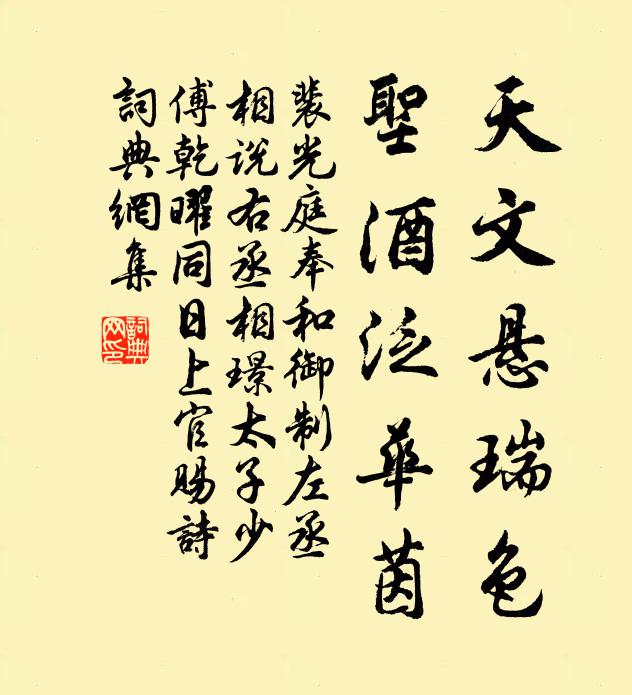 天文悬瑞色
聖酒泛華茵
裴光庭奉和御制左丞
相说右丞相璟太子少
傅乾曜同日上官赐詩
詞典網集
詞典
网印